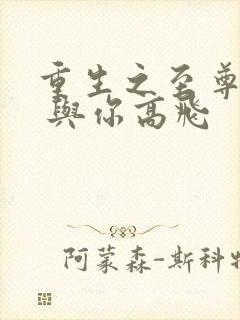 重生之至尊
與你高飛
阿蒙森-斯科特